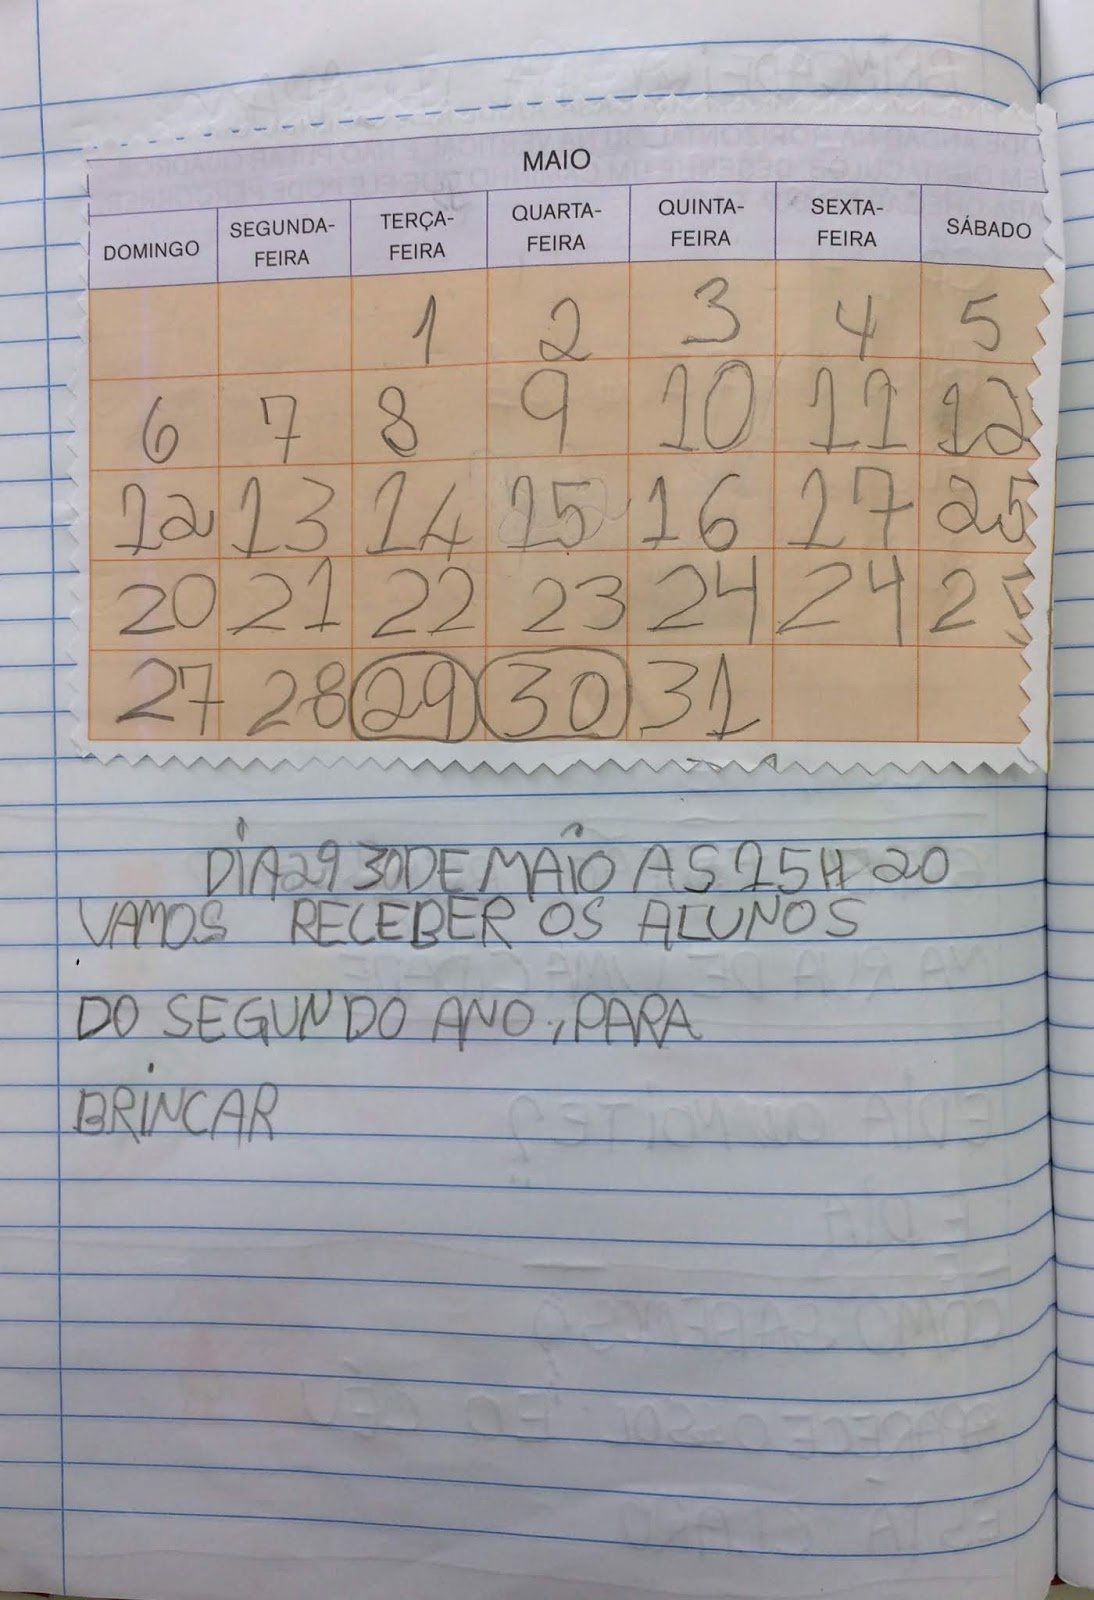 MAIO
DOMINGO SEGUNDA-FEIRA TERÇA-FEIRA QUARTA-FEIRA QUINTA-FEIRA SEXTA-FEIRA SÁBADO
1 2 3 4 5
6 7 8 9 10 11 12
12 13 14 15 16 17 25
20 21 22 23 24 24 25
27 28 29 30 31
DIA 29 30 DE MAIO AS 15H 20
VAMOS RECEBER OS ALUNOS
DO SEGUNDO ANO, PARA
BRINCAR